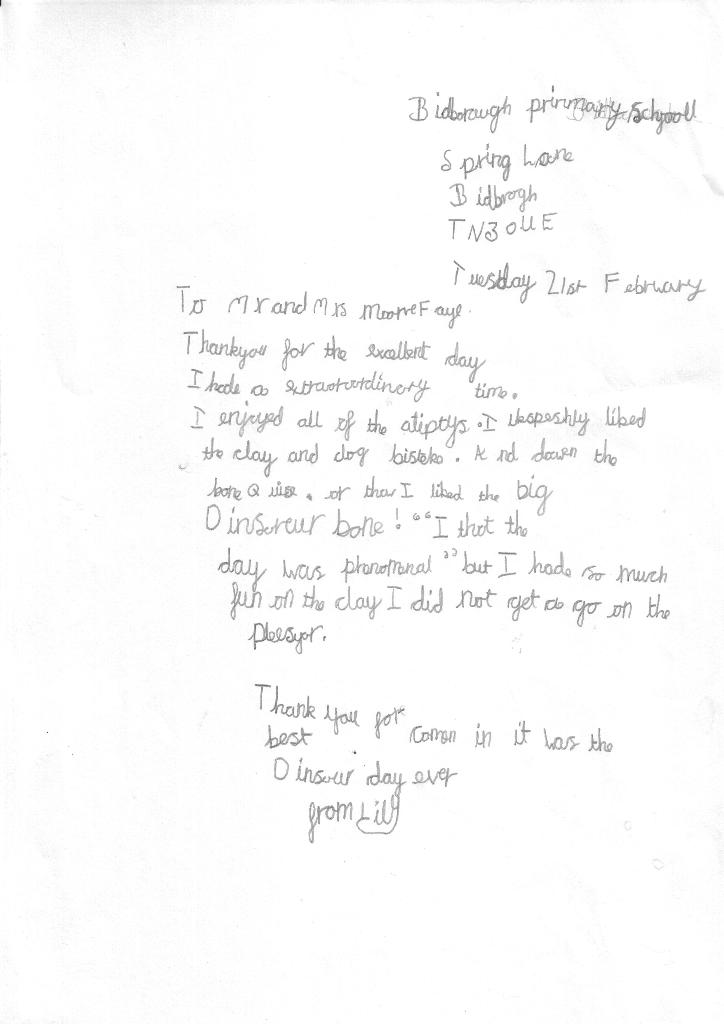 Bidborough primary School
Spring Lane
Bidbrogh
TN3 OUE
Tuesday 21st February
To Mr and Mrs Moorre Faye.
Thankyou for the excellent day
I hade a extraoraordinery time.
I enjoyed all of the atiptys. I
liked
the clay and dog bisteke. And down the
bone Q
. or
I liked the big
Dinsoreur bone! "I thot the
day was phenomenal" but I hade so much
fun on the clay I did not get to go on the
pleesyor.
Thank you for
best
Comen in it was the
Dinsour day ever
from Lilly